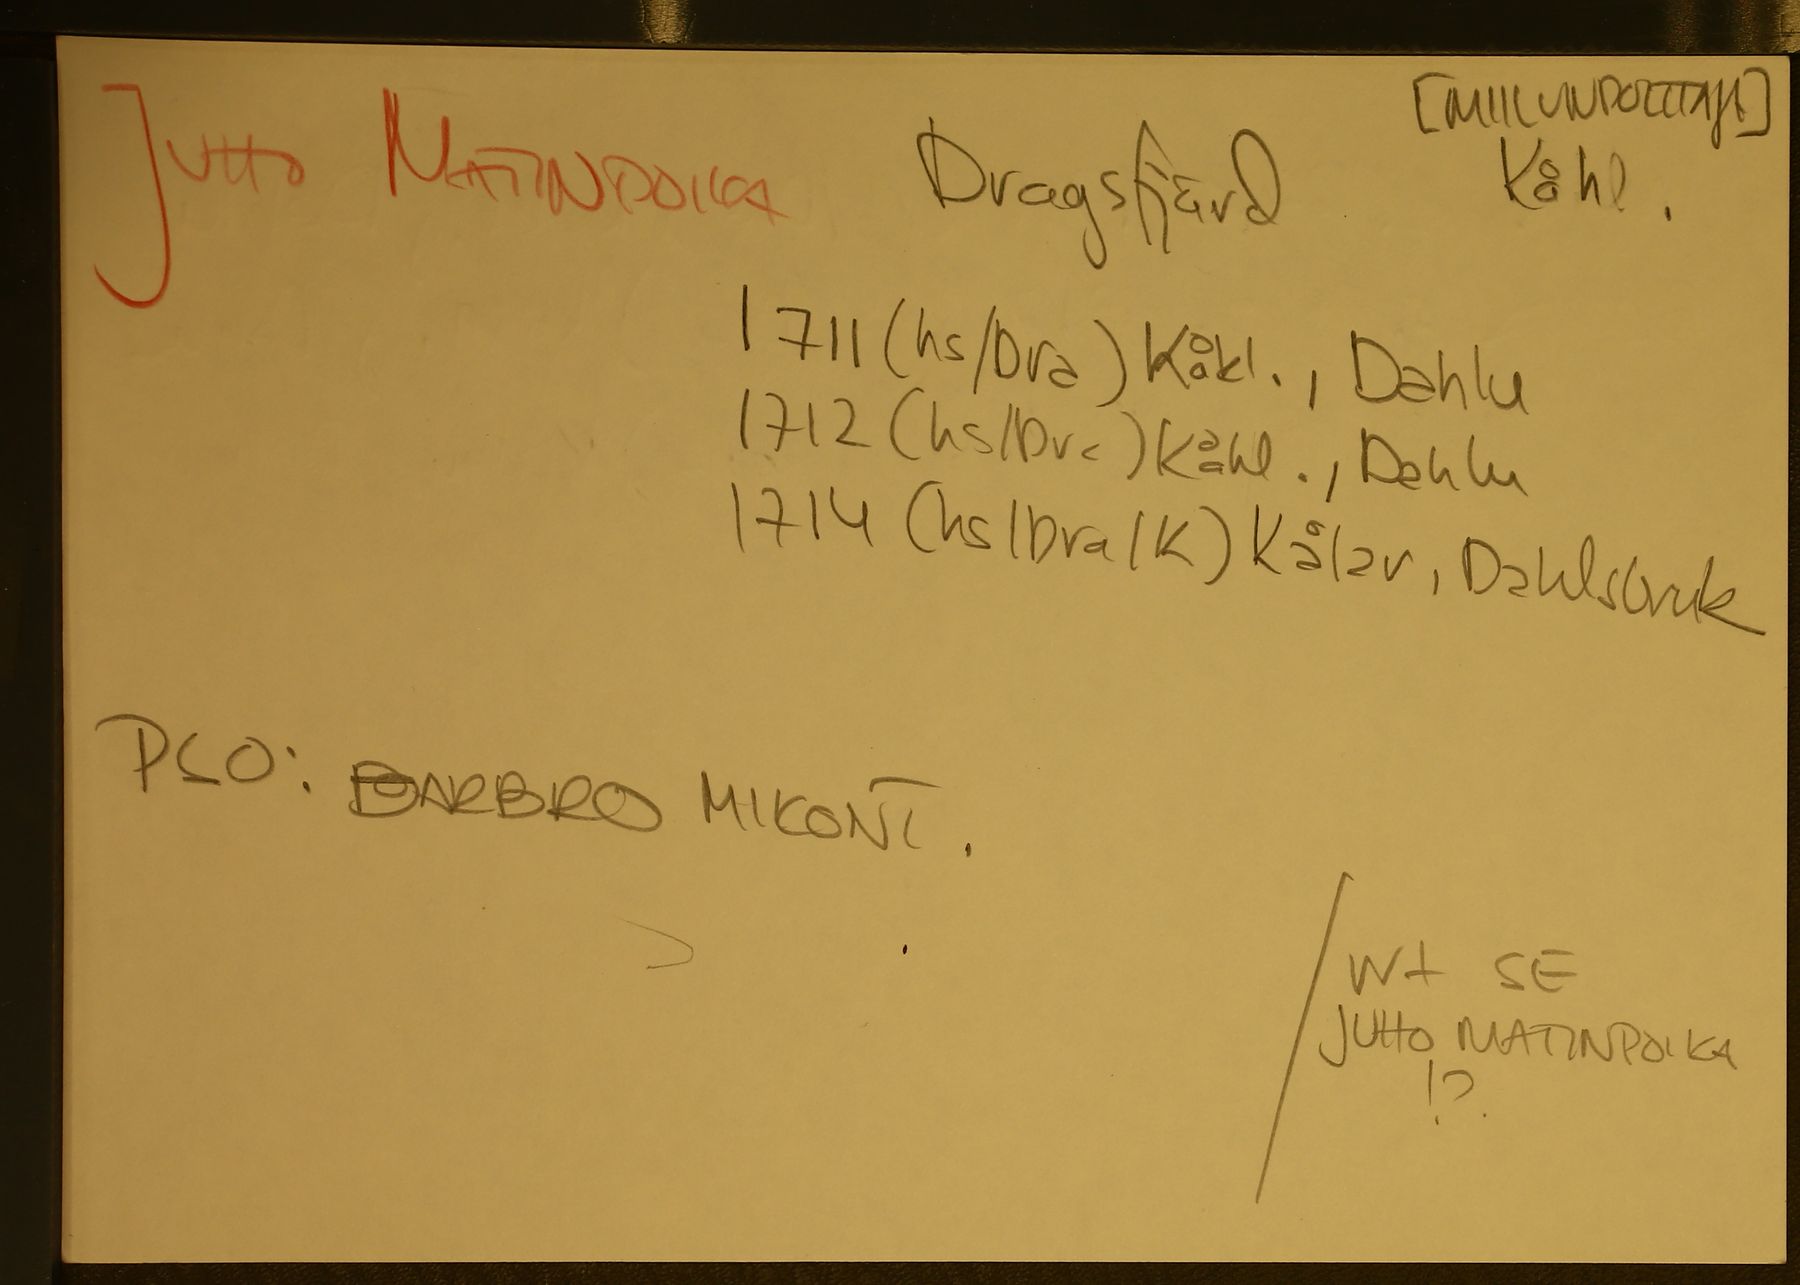 [MIILUNPOLTTAJA]
JUHO MATINPOIKA Dragsfjärd Kåhl.
1711 (hs/Dra) Kåkl., Dahlu
1712 (hs/Dra) Kåhl., Dahlu
1714 (hs/Dra/K) Kålar, Dahlsbruk
PSO: BARBRO MIKONT.
SE
JUHO MATINPOIKA
!?.